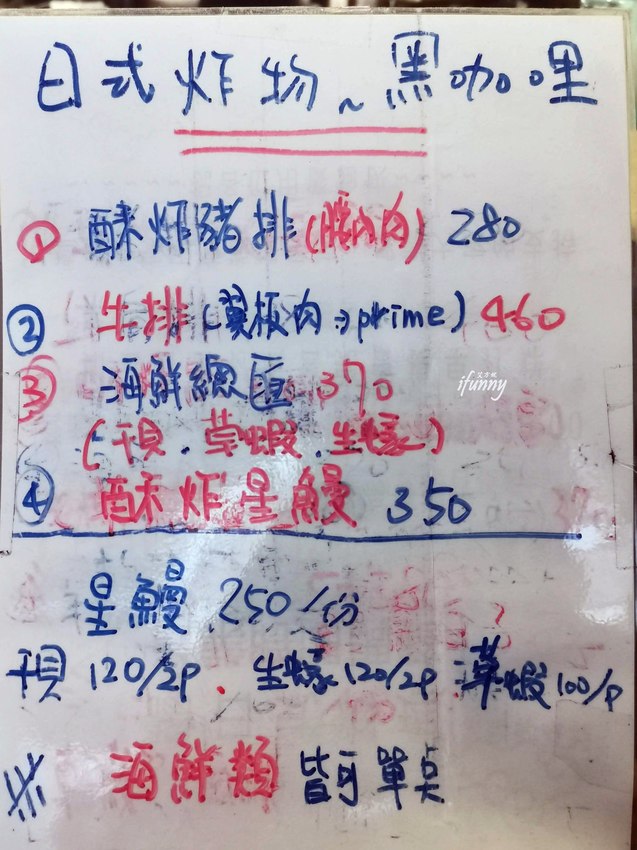 日式炸物~黑咖哩
① 酥炸豬排(腰內肉) 280
② 牛排(翼板肉→prime) 460
③ 海鮮總匯 370
艾方妮
ifunny
(干貝.草蝦.生蠔)
④ 酥炸星鰻 350
星鰻 250/份
干貝 120/2p. 生蠔 120/2p 草蝦 100/p
※ 海鮮類 皆可單点